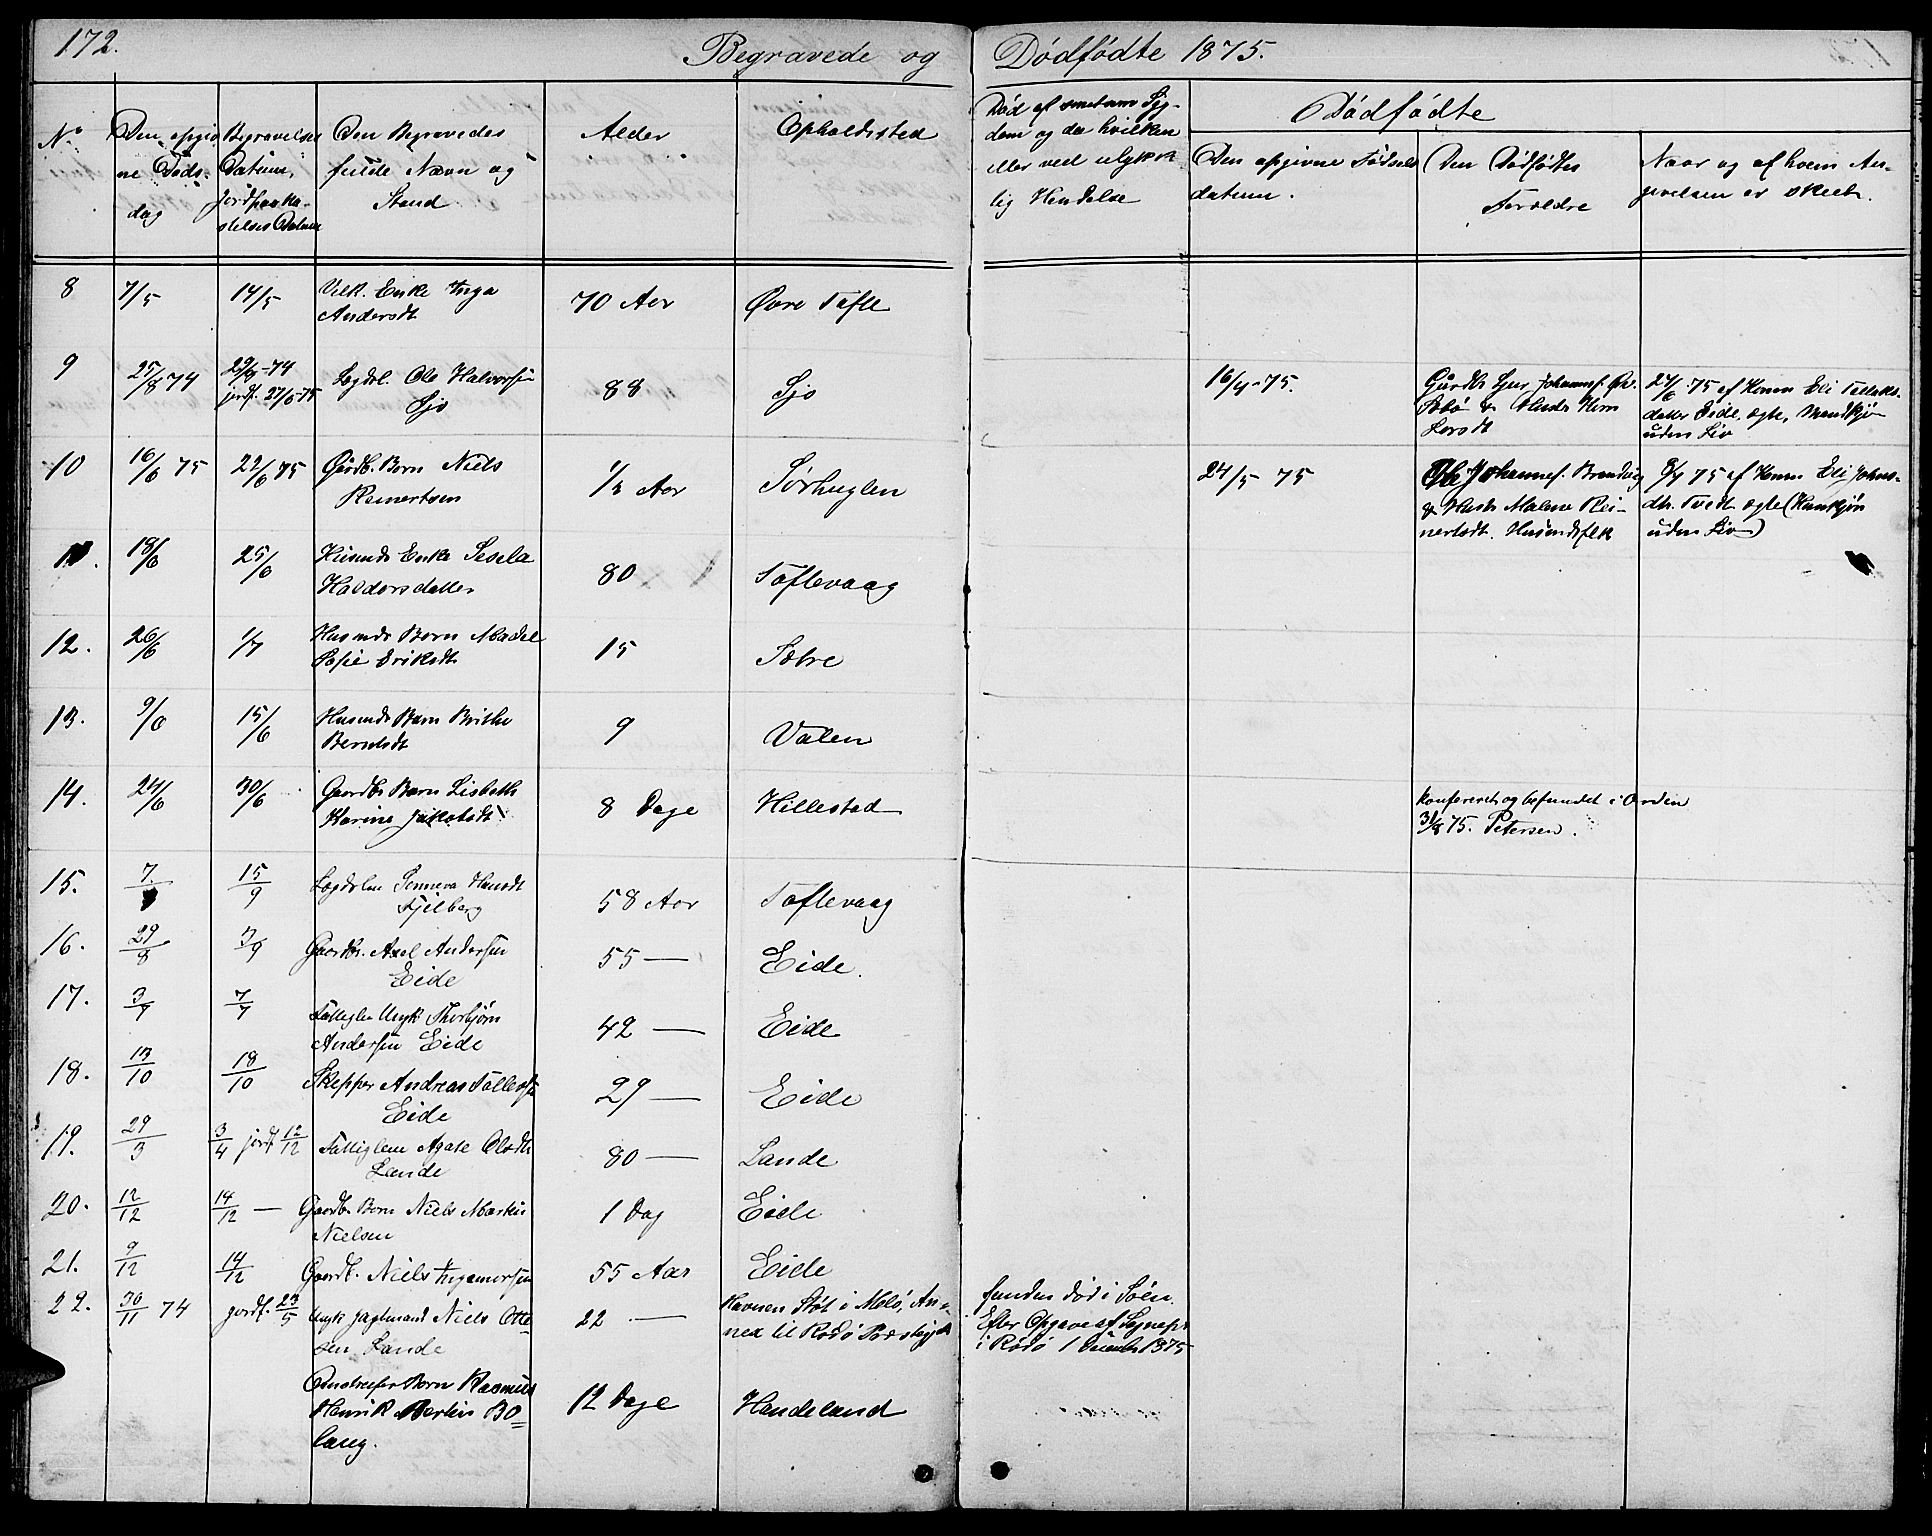 172.
Begravede og Dødfødte 1875.
No
Den opgiv
ne Døds-
dag
Begravelses
Datum,
Jordpaaka-
stelses Datum
Den Begravedes
fulde Navn og
Stand
Alder
Opholdssted
Død af smitsom Syg-
dom og da hvilken
eller ved ulykke
lig Hendelse
Dødfødte
Den opgivne Fødsels
datum.
Den Dødfødtes
Forældre
Naar og af hvem An-
givelsen er skeet.
8 7/5 14/5 Enke Inga
Andersdt 70 Aar Øvre Tofte
9 25/8 74 29/8-74
jordf. 27/6-75 Lægdsl. Ole Halvorsen
Sjo 88 Sjo
16/4-75. Gaardb Sjur Johannes.
& Hustr
Larsdt
27/6 75 af Konen Eli Tollaks-
datter Eide, ægte, Mandkjøn
uden Liv
10 16/6 75 22/6 75 Gårdb. Barn Niels
Reinertsen 1/2 Aar Sørhuglen
24/5 75 Ole Johannes. Brandvig
& Hustr Malene Rei-
nertsdt. Husmdsfolk
75 af Konen Eli Johns-
dtr. Tvedt ægte (Kvinkjøn
uden Liv)
11. 18/6 25/6 Husmds Enke Sesela
Haldorsdatter 80 Toftevaag
12. 26/6 1/7 Husmds Barn Madel
Sofie Eriksdt 15 Sætre
13. 9/6 15/6 Husmds Barn Brithe
Berntsdt 9 Valen
14. 24/6 30/6 Gaardbr Barn Lisbeth
Karine Jakobsdt 8 Dage Hillestad
konfereret og befundet i Orden
31/8 75. Petersen.
15. 7 15/9 Lægdslem Senneva Hansdt
Fjelberg 58 Aar Toftevaag
16. 29/8 3/9 Gaardbr. Axel Andersen
Eide 55 — Eide.
17. 3/7 7/7 Fattiglem Ungk Thorbjørn
Andersen Eide 42 — Eide
18. 13/10 18/10 Skepper Andreas Tollefsen
Eide 29 — Eide
19. 29/3 3/4 jordf 12/12 Fattiglem Agate Olsdt
Lande 80 — Lande
20. 12/12 14/12 — Gaardb. Barn Niels Martin
Nielsen 1 Dag Eide
21. 9/12 14/12 Gaardb. Niels Ingemorsen 55 Aar Eide
22. 30/11 74 jordf. 23/5 Ungk Niels Otte-
sen Lande 22 — Havnen Støt i Melø, An-
nex til Rødø Præstegjeld
funden død i Søen.
Efter Opgave af Sognepr.
i Rødø 1 December 1875
Barn Rasmus
Henrik Martin Bo-
lang. 12 Dage Handeland